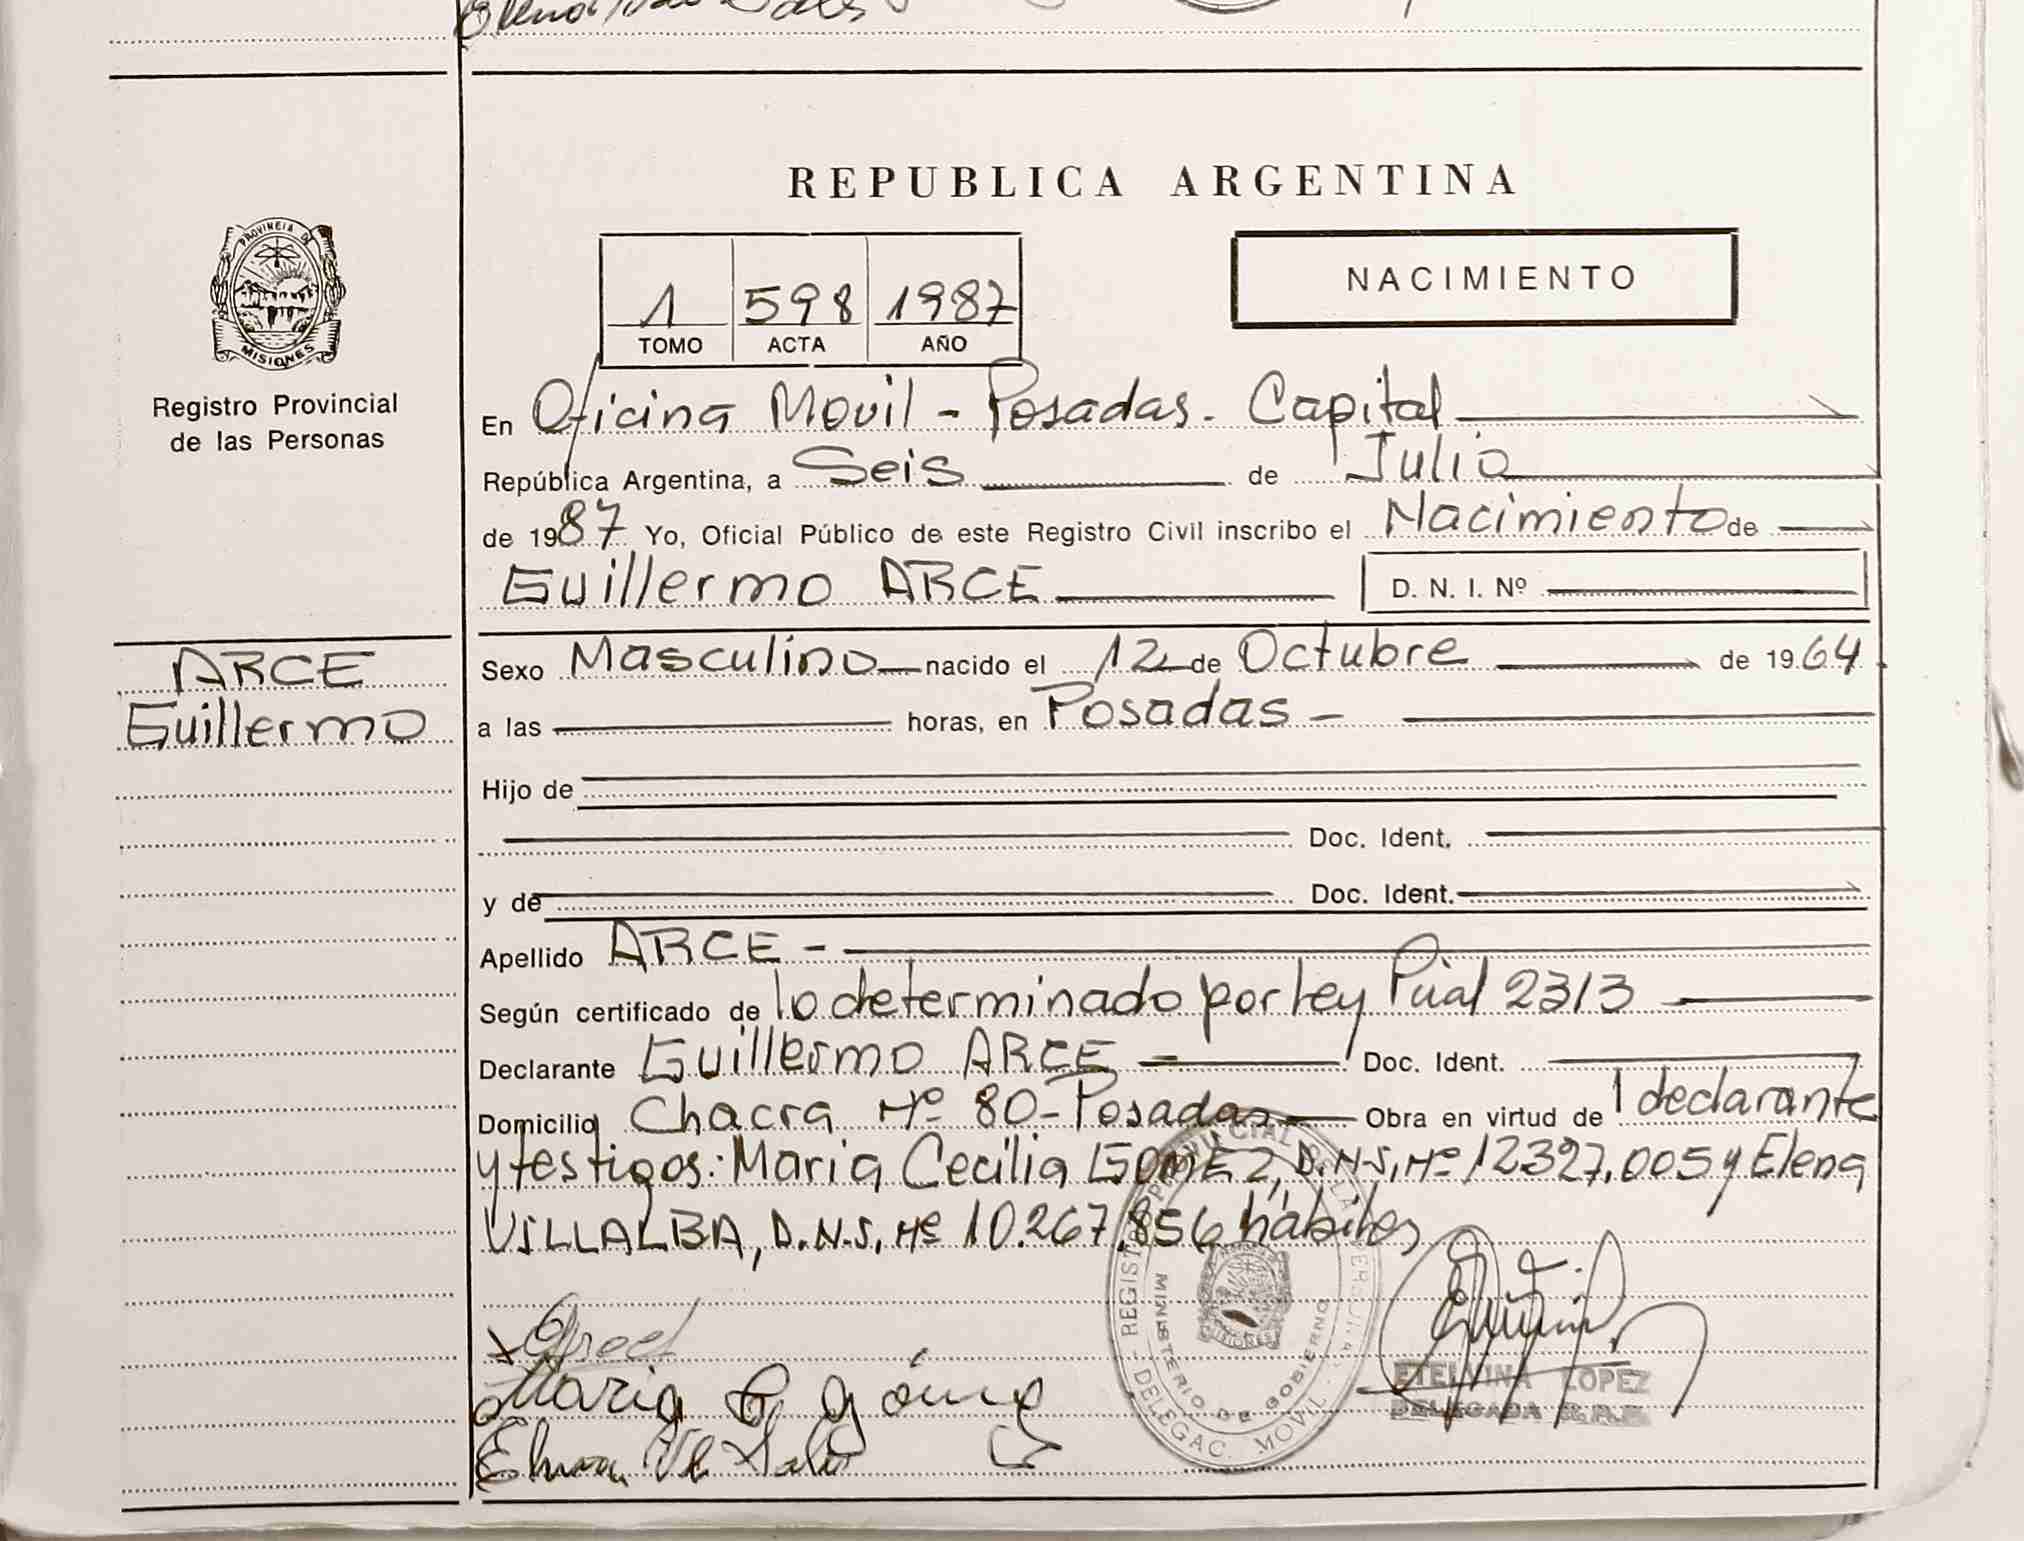 REPUBLICA ARGENTINA
PROVINCIA DE
MISIONES
Registro Provincial
de las Personas
1 598 1987
TOMO ACTA AÑO
NACIMIENTO
En Oficina Movil - Posadas - Capital
República Argentina, a Seis de Julio
de 1987 Yo, Oficial Público de este Registro Civil inscribo el Nacimiento de
Guillermo ARCE D. N. I. Nº
ARCE
Guillermo
Sexo Masculino nacido el 12 de Octubre de 1964
a las horas, en Posadas -
Hijo de
Doc. Ident.
y de Doc. Ident.
Apellido ARCE -
Según certificado de lo determinado por Ley Pcial 2313
Declarante Guillermo ARCE - Doc. Ident.
Domicilio Chacra Nº 80 - Posadas Obra en virtud de 1 declarante
y testigos: Maria Cecilia GOMEZ, D.N.I. Nº 12327.005 y Elena
VILLALBA, D.N.I. Nº 10.267.856 hábiles
REGISTRO PROVINCIAL DE LAS PERSONAS
MINISTERIO DE GOBIERNO
DELEGAC. MOVIL
Maria C Gómez
ETELVINA LOPEZ
DELEGADA R.P.P.